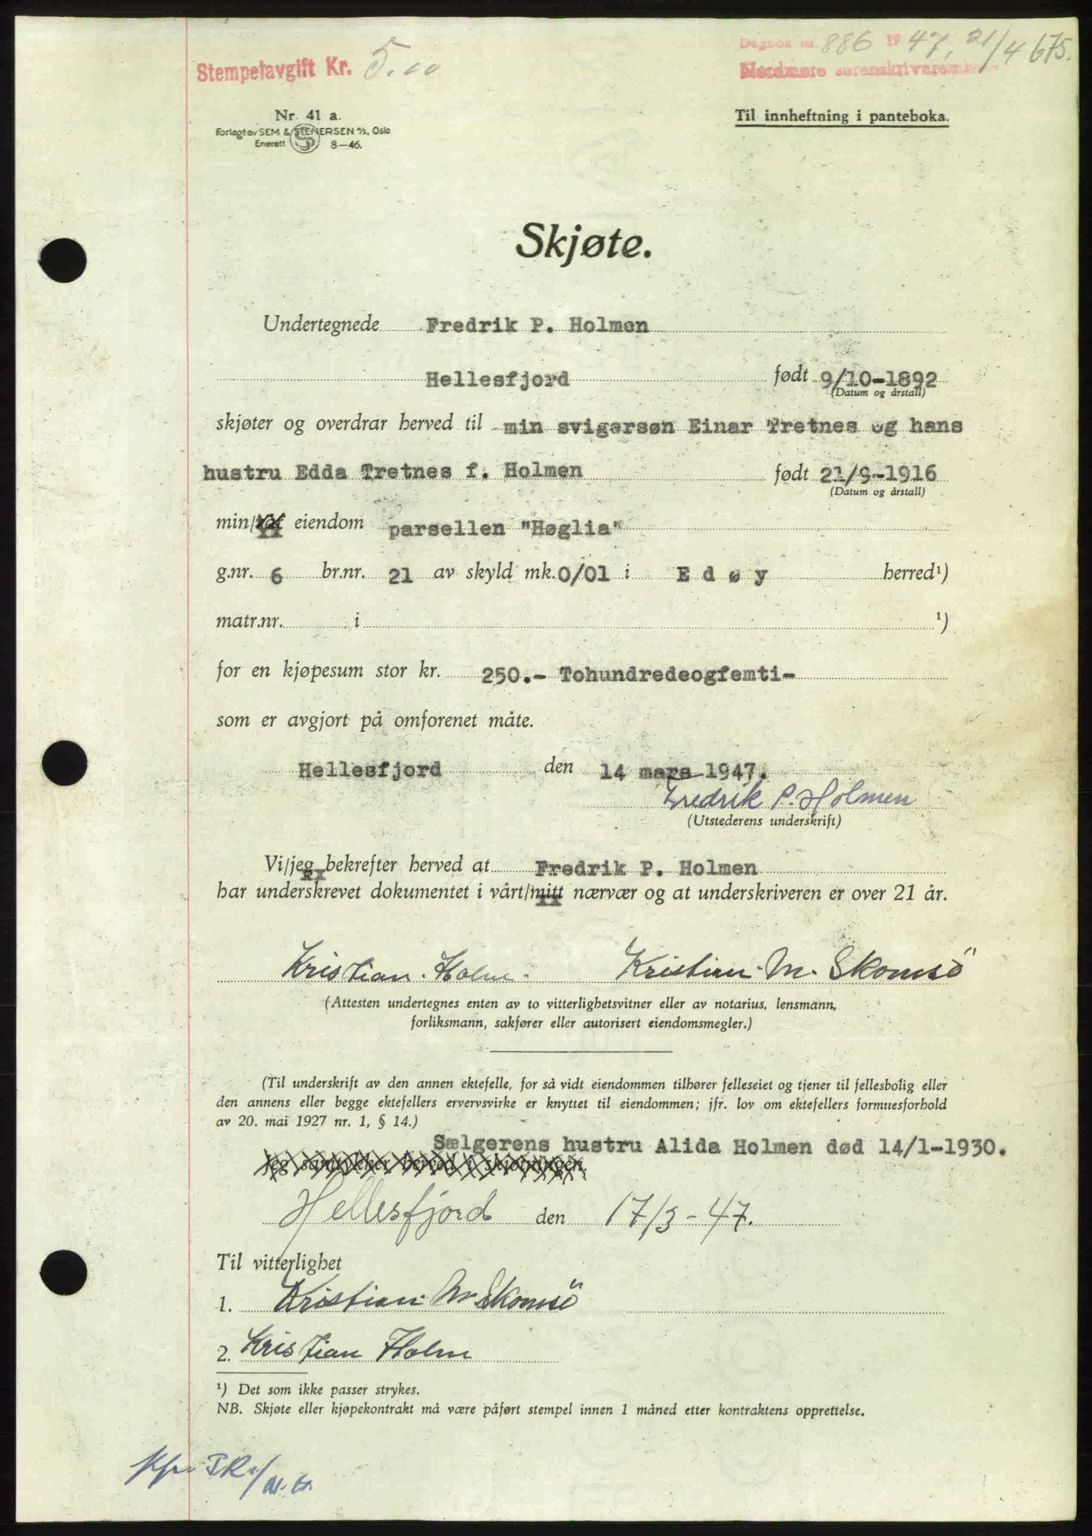 Stempelavgift Kr. 5.00
Dagbok nr. 886 1947, 21/4 675.
Nordmøre sorenskriverembede
Nr. 41 a.
Forlagt av SEM & STENERSEN A/S, Oslo
Enerett 8—46.
Til innheftning i panteboka.
Skjøte.
Undertegnede Fredrik P. Holmen
Hellesfjord født 9/10-1892
(Datum og årstall)
skjøter og overdrar herved til min svigersøn Einar Tretnes og hans
hustru Edda Tretnes f. Holmen født 21/9-1916
(Datum og årstall)
min/vår eiendom parsellen "Høglia"
g.nr. 6 br.nr. 21 av skyld mk. 0/01 i Edøy herred¹)
matr.nr. i ¹)
for en kjøpesum stor kr. 250.- Tohundredeogfemti-
som er avgjort på omforenet måte.
Hellesfjord den 14 mars 1947.
Fredrik P. Holmen
(Utstederens underskrift)
Vi/jeg bekrefter herved at Fredrik P. Holmen
har underskrevet dokumentet i vårt/mitt nærvær og at underskriveren er over 21 år.
Kristian Holm. Kristian M. Skomsö
(Attesten undertegnes enten av to vitterlighetsvitner eller av notarius, lensmann,
forliksmann, sakfører eller autorisert eiendomsmegler.)
(Til underskrift av den annen ektefelle, for så vidt eiendommen tilhører felleseiet og tjener til fellesbolig eller
den annens eller begge ektefellers ervervsvirke er knyttet til eiendommen; jfr. lov om ektefellers formuesforhold
av 20. mai 1927 nr. 1, § 14.)
Sælgerens hustru Alida Holmen død 14/1-1930.
Jeg samtykker herved i skjøtningen.
Hellesfjord den 17/3-47.
Til vitterlighet
1. Kristian M Skomsö
2. Kristian Holm
¹) Det som ikke passer strykes.
NB. Skjøte eller kjøpekontrakt må være påført stempel innen 1 måned etter kontraktens opprettelse.